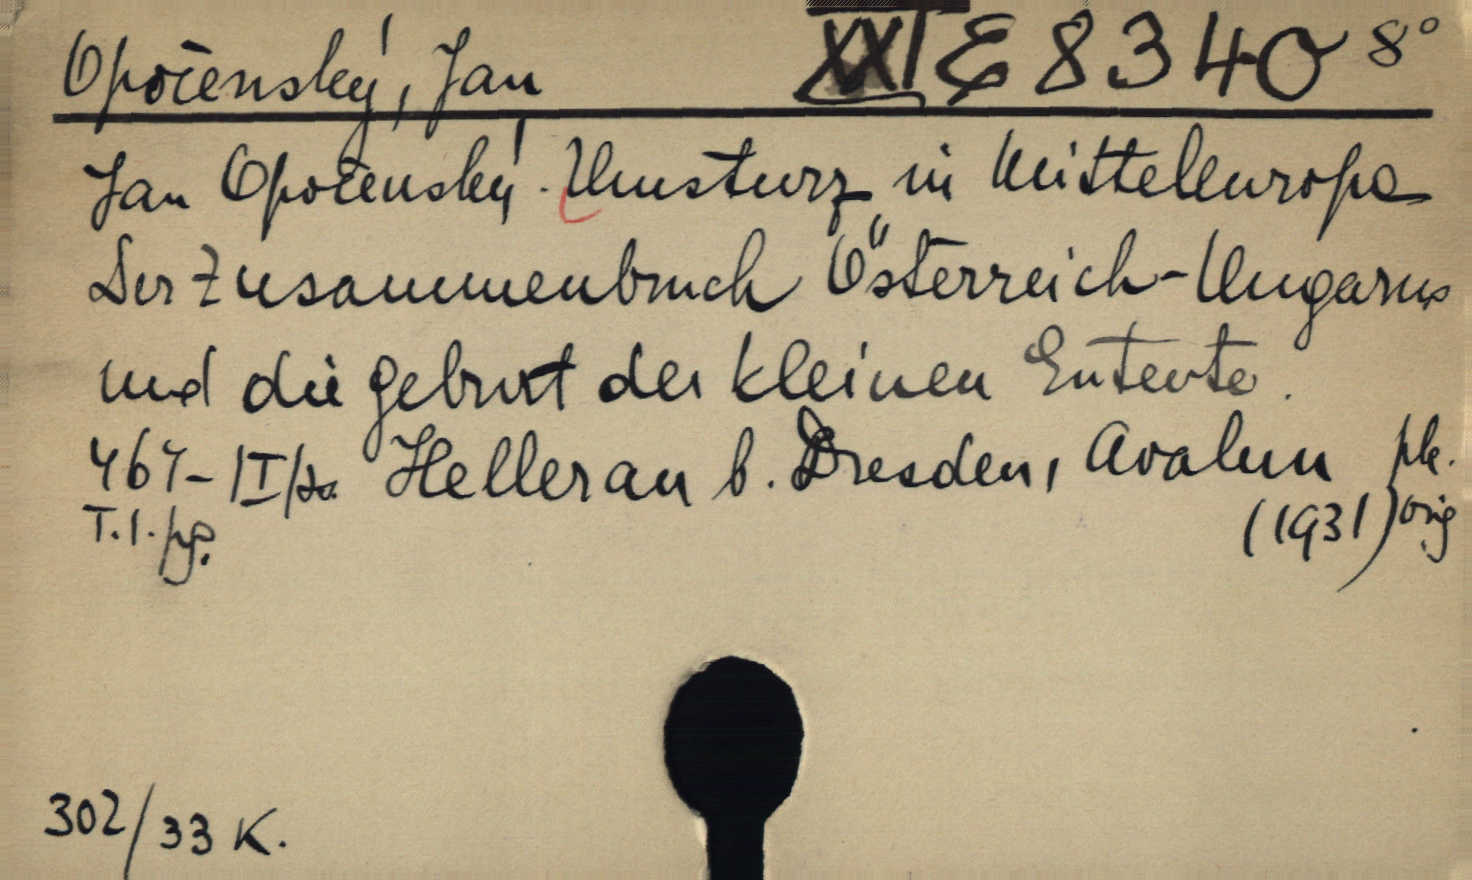 Opočenský, Jan XXI E 8340 8°
Jan Opočenský. Umsturz in Mitteleuropa
Der Zusammenbruch Österreich-Ungarns
und die geburt der kleinen Entente.
467-1I/ Hellerau b. Dresden, Avalun plr.
T.1.pg. (1931) orig
302/33 K.